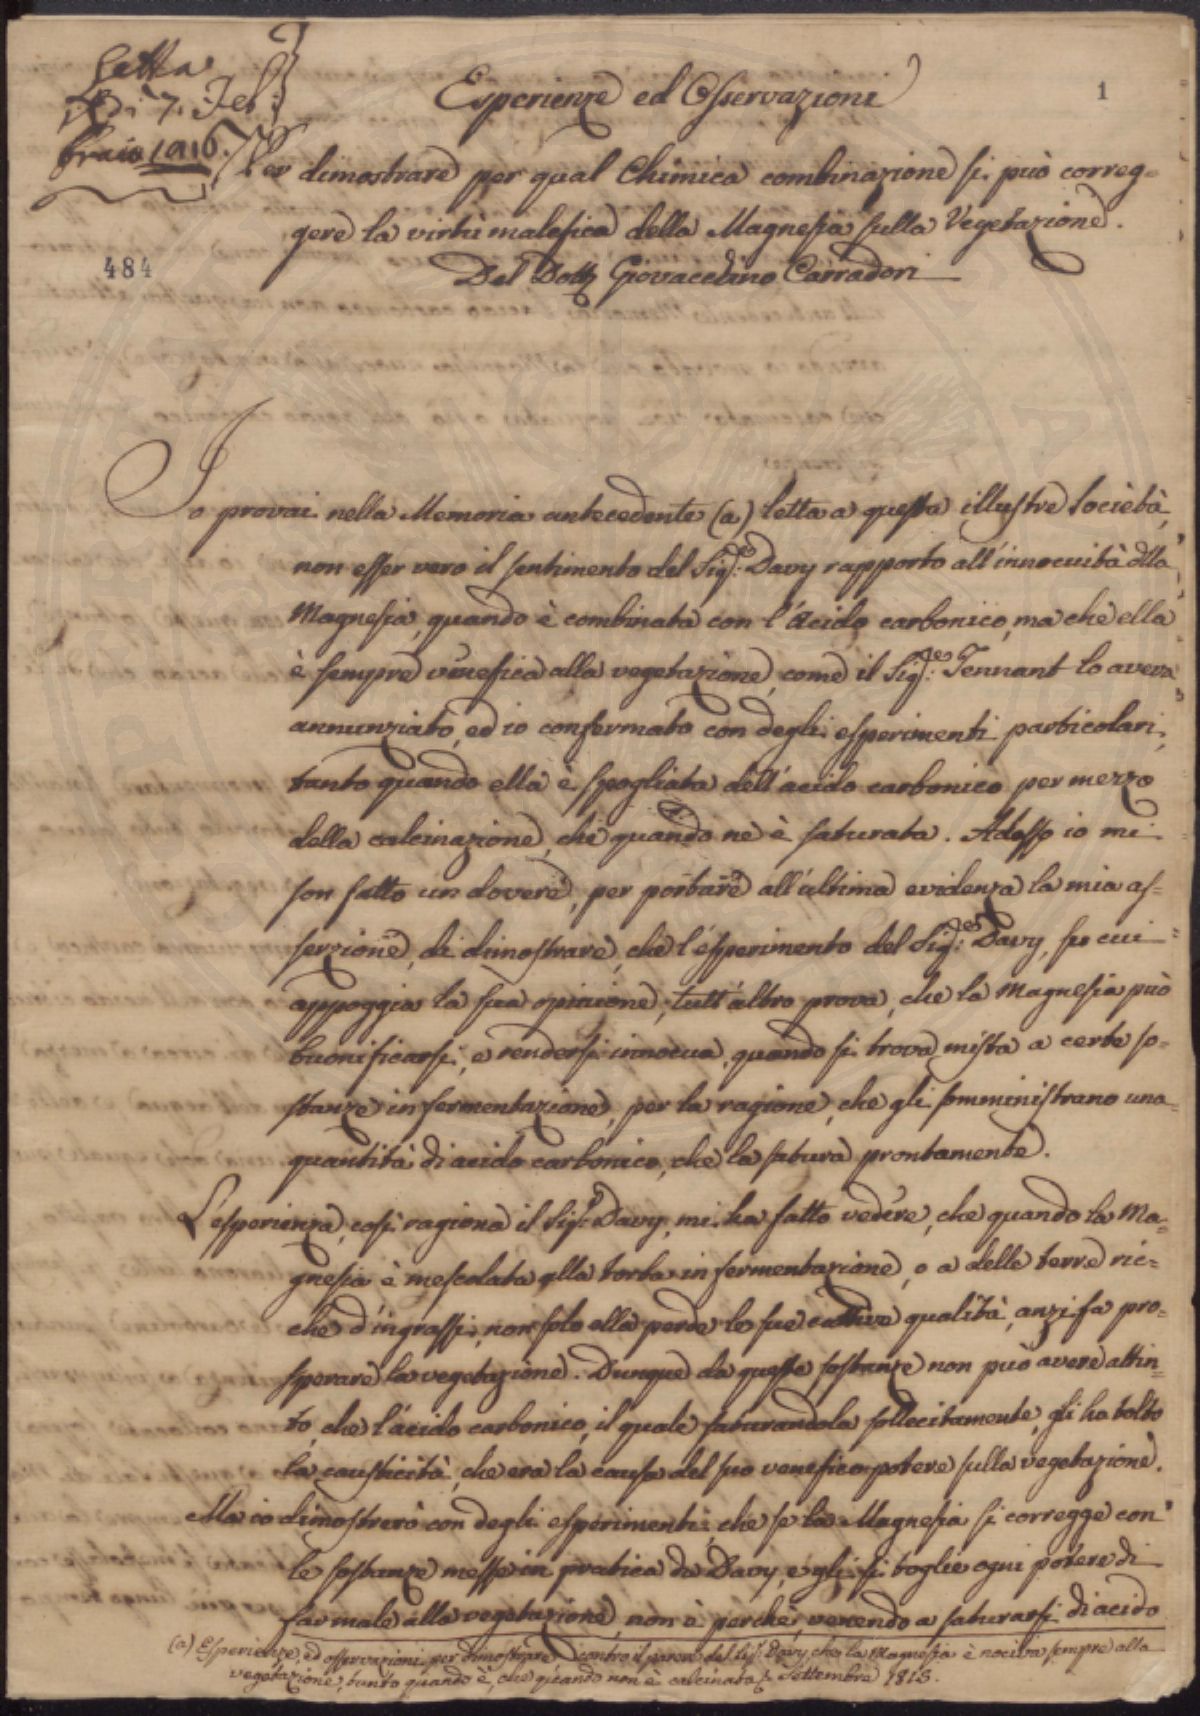 Letta
il dì 7. Feb:
braio 1816.
1
Esperienze ed Osservazioni
Per dimostrare per qual Chimica combinazione si può correg=
gere la virtù malefica della Magnesia sulla Vegetazione.
484
Del Dott. Giovacchino Carradori
Io provai nella Memoria antecedente (a) letta a questa illustre Società,
non esser vero il sentimento del Sig.e Davy rapporto all'innocuità dlla
Magnesia, quando è combinata con l'Acido carbonico, ma che ella
è sempre venefica alla vegetazione, come il Sig.e Tennant lo aveva
annunziato, ed io confermato con degli esperimenti particolari,
tanto quando ella è spogliata dell'acido carbonico per mezzo
della calcinazione, che quando ne è saturata. Adesso io mi
son fatto un dovere, per portare all'ultima evidenza la mia as=
serzione, di dimostrare, che l'esperimento del Sig.e Davy, su cui
appoggia la sua opinione, tutt'altro prova, che la Magnesia può
buonificarsi, e rendersi innocua, quando si trova mista a certe so=
stanze in fermentazione, per la ragione, che gli somministrano una
quantità di acido carbonico, che la satura prontamente.
L'esperienza, così ragiona il Sig.e Davy, mi ha fatto vedere, che quando la Ma=
gnesia è mescolata alla torba in fermentazione, o a delle terre ric=
che d'ingrassi, non solo ella perde le sue cattive qualità, anzi fa pro=
sperare la vegetazione. Dunque da queste sostanze non può avere attin=
to, che l'acido carbonico, il quale saturandola sollecitamente, gli ha tolto
la causticità, che era la causa del suo venefico potere sulla vegetazione.
Ma io dimostrerò con degli esperimenti, che se la Magnesia si corregge con
le sostanze messe in pratica da Davy, e gli si toglie ogni potere di
far male alla vegetazione, non è perchè, venendo a saturarsi di acido
(a) Esperienze, ed osservazioni per dimostrare contro il parere del Sig. Davy, che la Magnesia è nociva sempre alla
vegetazione, tanto quando è, che quando non è calcinata. Settembre 1815.